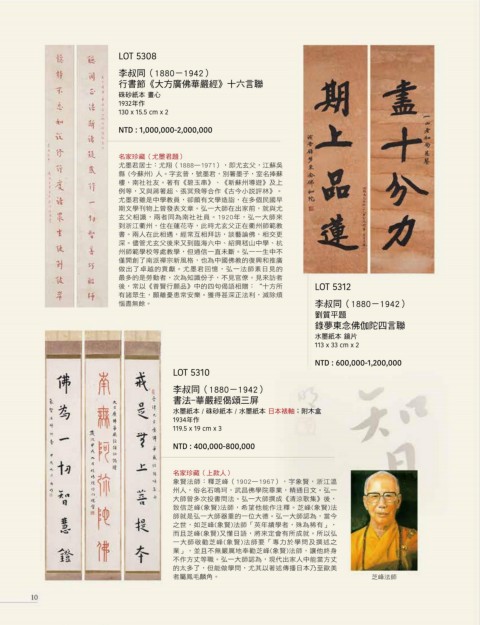 LOT 5308
李叔同（1880－1942）
行書節《大方廣佛華嚴經》十六言聯
硃砂紙本 畫心
1932年作
130 x 15.5 cm x 2
NTD : 1,000,000-2,000,000
名家珍藏（尤墨君題）
尤墨君居士：尤翔（1888－1971），即尤玄父，江蘇吳
縣（今蘇州）人。字玄晉，號墨君，別署墨子，室名捧蘇
樓，南社社友。著有《碧玉串》、《新蘇州導遊》及上
例等，又與蔣著超、張冥飛等合作《古今小說評林》。
尤墨君雖是中學教員，卻頗有文學造詣，在多個民國早
期文學刊物上皆發表文章。弘一大師在出家前，就與尤
玄父相識，兩者同為南社社員。1920年，弘一大師來
到浙江衢州，住在蓮花寺，此時尤玄父正在衢州師範教
書。兩人在此相遇，經常互相拜訪，談藝論佛，相交更
深。儘管尤玄父後來又到臨海六中、紹興稽山中學、杭
州師範學校等處教學，但通信一直未斷。弘一一生中不
僅開創了南派禪宗新風格，也為中國佛教的復興和推廣
做出了卓越的貢獻。尤墨君回憶，弘一法師素日見的
最多的是勞動者，次為知識份子，不見官僚。見來訪者
後，常以《普賢行願品》中的四句偈語相贈：“十方所
有諸眾生，願離憂患常安樂。獲得甚深正法利，滅除煩
惱盡無餘。
盡十分力
期上品蓮
LOT 5312
李叔同（1880－1942）
劉質平題
錄夢東念佛伽陀四言聯
水墨紙本 鏡片
113 x 33 cm x 2
NTD : 600,000-1,200,000
LOT 5310
李叔同（1880－1942）
書法-華嚴經偈頌三屏
水墨紙本 / 硃砂紙本 / 水墨紙本 日本裱軸；附木盒
1934年作
119.5 x 19 cm x 3
NTD : 400,000-800,000
戒是無上菩提本
南無阿彌陀佛
佛為一切智慧燈
名家珍藏（上款人）
象賢法師：釋芝峰（1902－1967），字象賢，浙江溫
州人，俗名石鳴珂，武昌佛學院畢業，精通日文。弘一
大師曾多次投書問法。弘一大師撰成《清涼歌集》後，
致信芝峰(象賢)法師，希望他能作注釋。芝峰(象賢)法
師就是弘一大師器重的一位大德。弘一大師認為，當今
之世，如芝峰(象賢)法師「英年績學者，殊為稀有」，
而且芝峰(象賢)又懂日語，將來定會有所成就，所以弘
一大師敬勸芝峰(象賢)法師要「專力於學問及撰述之
業」，並且不無嚴厲地奉勸芝峰(象賢)法師，讓他終身
不作方丈等職。弘一大師認為，現代出家人中能當方丈
的太多了，但能做學問，尤其以著述傳播日本乃至歐美
者屬鳳毛麟角。
芝峰法師
10